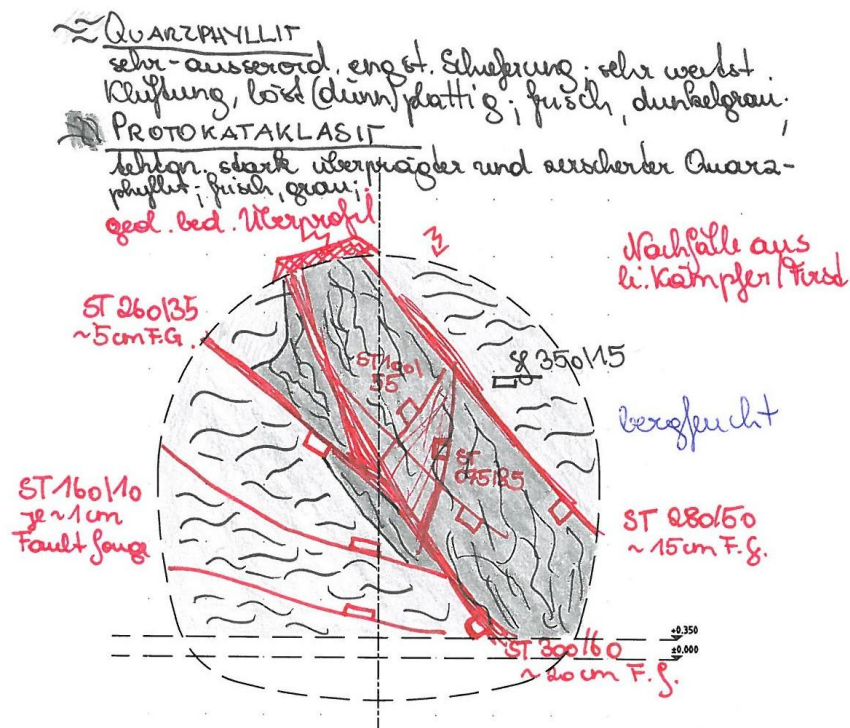 QUARZPHYLLIT
sehr-ausserord. engst. Schieferung; sehr weitst.
Klüftung, löst (dünn)plattig; frisch, dunkelgrau;
PROTOKATAKLASIT
tekton. stark überprägter und zerscherter Quarz-
phyllit; frisch, grau;
geol. bed. Überprofil
Nachfälle aus
li. Kämpfer/First
ST 260/35
~5cm F.G.
ST 190/
55
sf 350/15
bergfeucht
ST
075/85
ST 160/10
je ~1cm
Fault Gouge
ST 280/50
~15cm F.G.
+0.350
±0.000
ST 300/60
~20cm F.G.